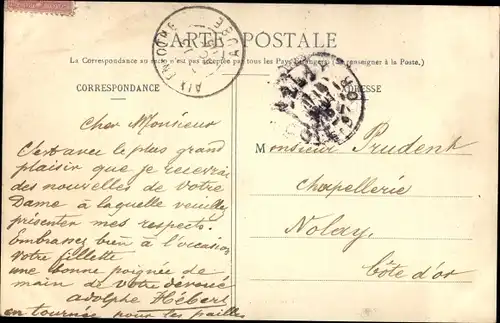 CARTE POSTALE
La Correspondance au recto n'est pas acceptée par tous les Pays Étrangers (Se renseigner à la Poste.)
CORRESPONDANCE
ADRESSE
AIX EN OTHE
AUBE
Cher Monsieur
C'est avec le plus grand
plaisir que je recevrai
des nouvelles de votre
Dame à laquelle veuillez
présenter mes respects.
Embrassez bien à l'occasion
votre fillette
une bonne poignée de
main de votre dévoué
Adolphe Hébert
en tournée pour les pailles
Monsieur Prudent
Chapellerie
Nolay,
Côte d'or